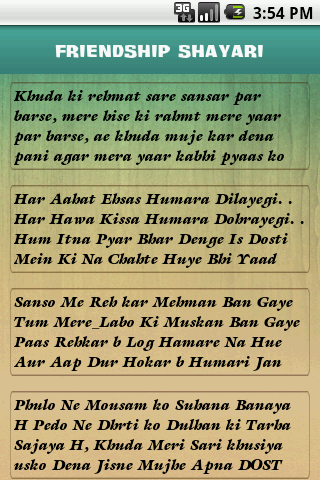 3G
3:54 PM
FRIENDSHIP SHAYARI
Khuda ki rehmat sare sansar par
barse, mere hise ki rahmt mere yaar
par barse, ae khuda muje kar dena
pani agar mera yaar kabhi pyaas ko
Har Aahat Ehsas Humara Dilayegi. .
Har Hawa Kissa Humara Dohrayegi. .
Hum Itna Pyar Bhar Denge Is Dosti
Mein Ki Na Chahte Huye Bhi Yaad
Sanso Me Reh kar Mehman Ban Gaye
Tum Mere_Labo Ki Muskan Ban Gaye
Paas Rehkar b Log Hamare Na Hue
Aur Aap Dur Hokar b Humari Jan
Phulo Ne Mousam ko Suhana Banaya
H Pedo Ne Dhrti ko Dulhan ki Tarha
Sajaya H, Khuda Meri Sari khusiya
usko Dena Jisne Mujhe Apna DOST